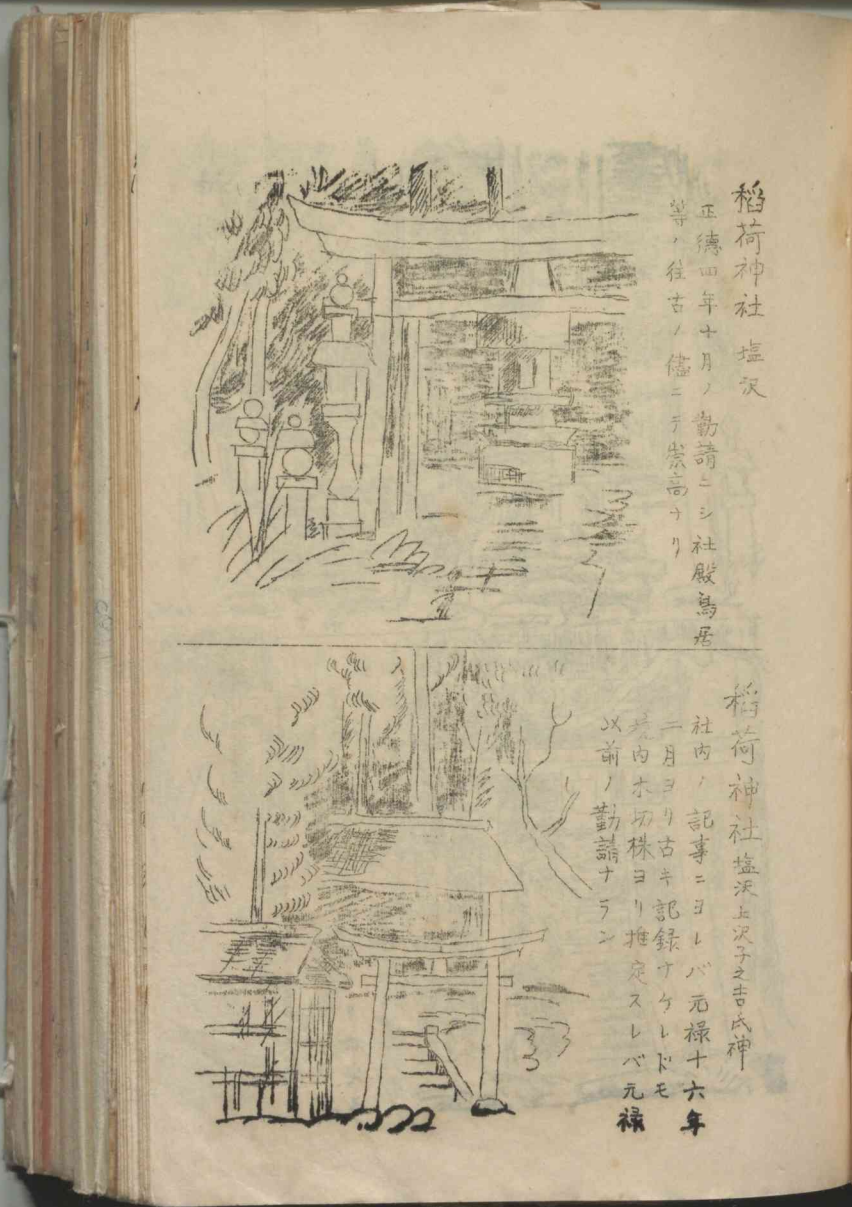 稲荷神社 塩沢
正徳四年十月ノ勧請ニシ社殿鳥居
等ノ往古ノ儘ニテ崇高ナリ
稲荷神社 塩沢上沢子之吉氏神
社内ノ記事ニヨレバ元禄十六年
二月ヨリ古キ記録ナケレドモ
内木切株ヨリ推定スレバ元禄
以前ノ勧請ナラン